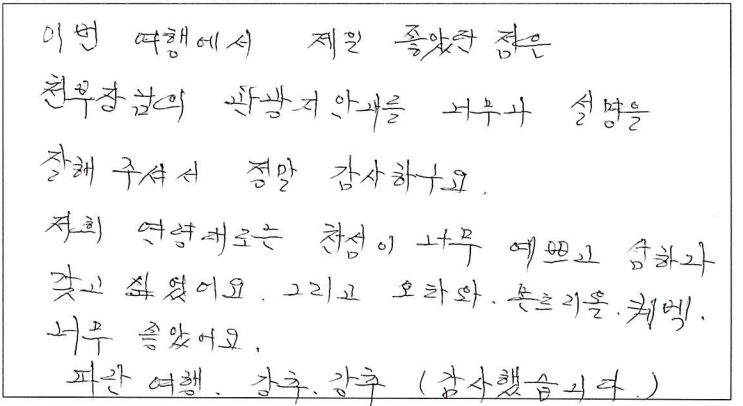 이번 여행에서 제일 좋았던 점은
천부장님의 관광지안내를 너무나 설명을
잘해 주셔서 정말 감사하구요.
저희 연령대로는 천섬이 너무 예쁘고 섬하나
갖고 싶었어요. 그리고 오타와. 몬트리올. 퀘벡.
너무 좋았어요.
파란 여행. 강추. 강추 (감사했습니다.)